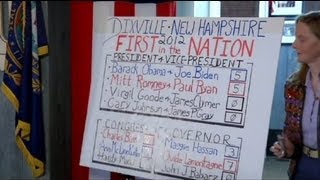 DIXVILLE · NEW HAMPSHIRE
2012
FIRST in the NATION
PRESIDENT & VICE-PRESIDENT
Barack Obama & Joe Biden 5
Mitt Romney & Paul Ryan 5
Virgil Goode & James Clymer 0
Gary Johnson & James Gray 0
CONGRESS
Charles Bass
GOVERNOR
Maggie Hassan 3
Ovide Lamontagne 7
John J. Babiarz 0